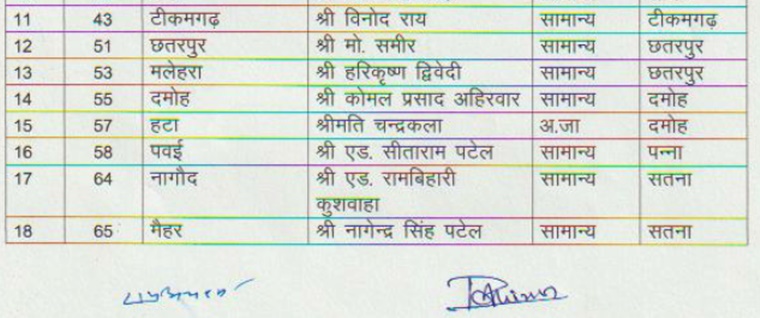 11 43 टीकमगढ़ श्री विनोद राय सामान्य टीकमगढ़
12 51 छतरपुर श्री मो. समीर सामान्य छतरपुर
13 53 मलेहरा श्री हरिकृष्ण द्विवेदी सामान्य छतरपुर
14 55 दमोह श्री कोमल प्रसाद अहिरवार सामान्य दमोह
15 57 हटा श्रीमति चन्द्रकला अ.जा दमोह
16 58 पवई श्री एड. सीताराम पटेल सामान्य पन्ना
17 64 नागौद श्री एड. रामबिहारी सामान्य सतना
कुशवाहा
18 65 मैहर श्री नागेन्द्र सिंह पटेल सामान्य सतना